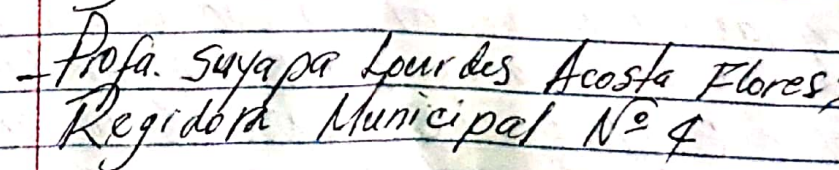 - Profa. Suyapa Lourdes Acosta Flores;
Regidora Municipal Nº 4